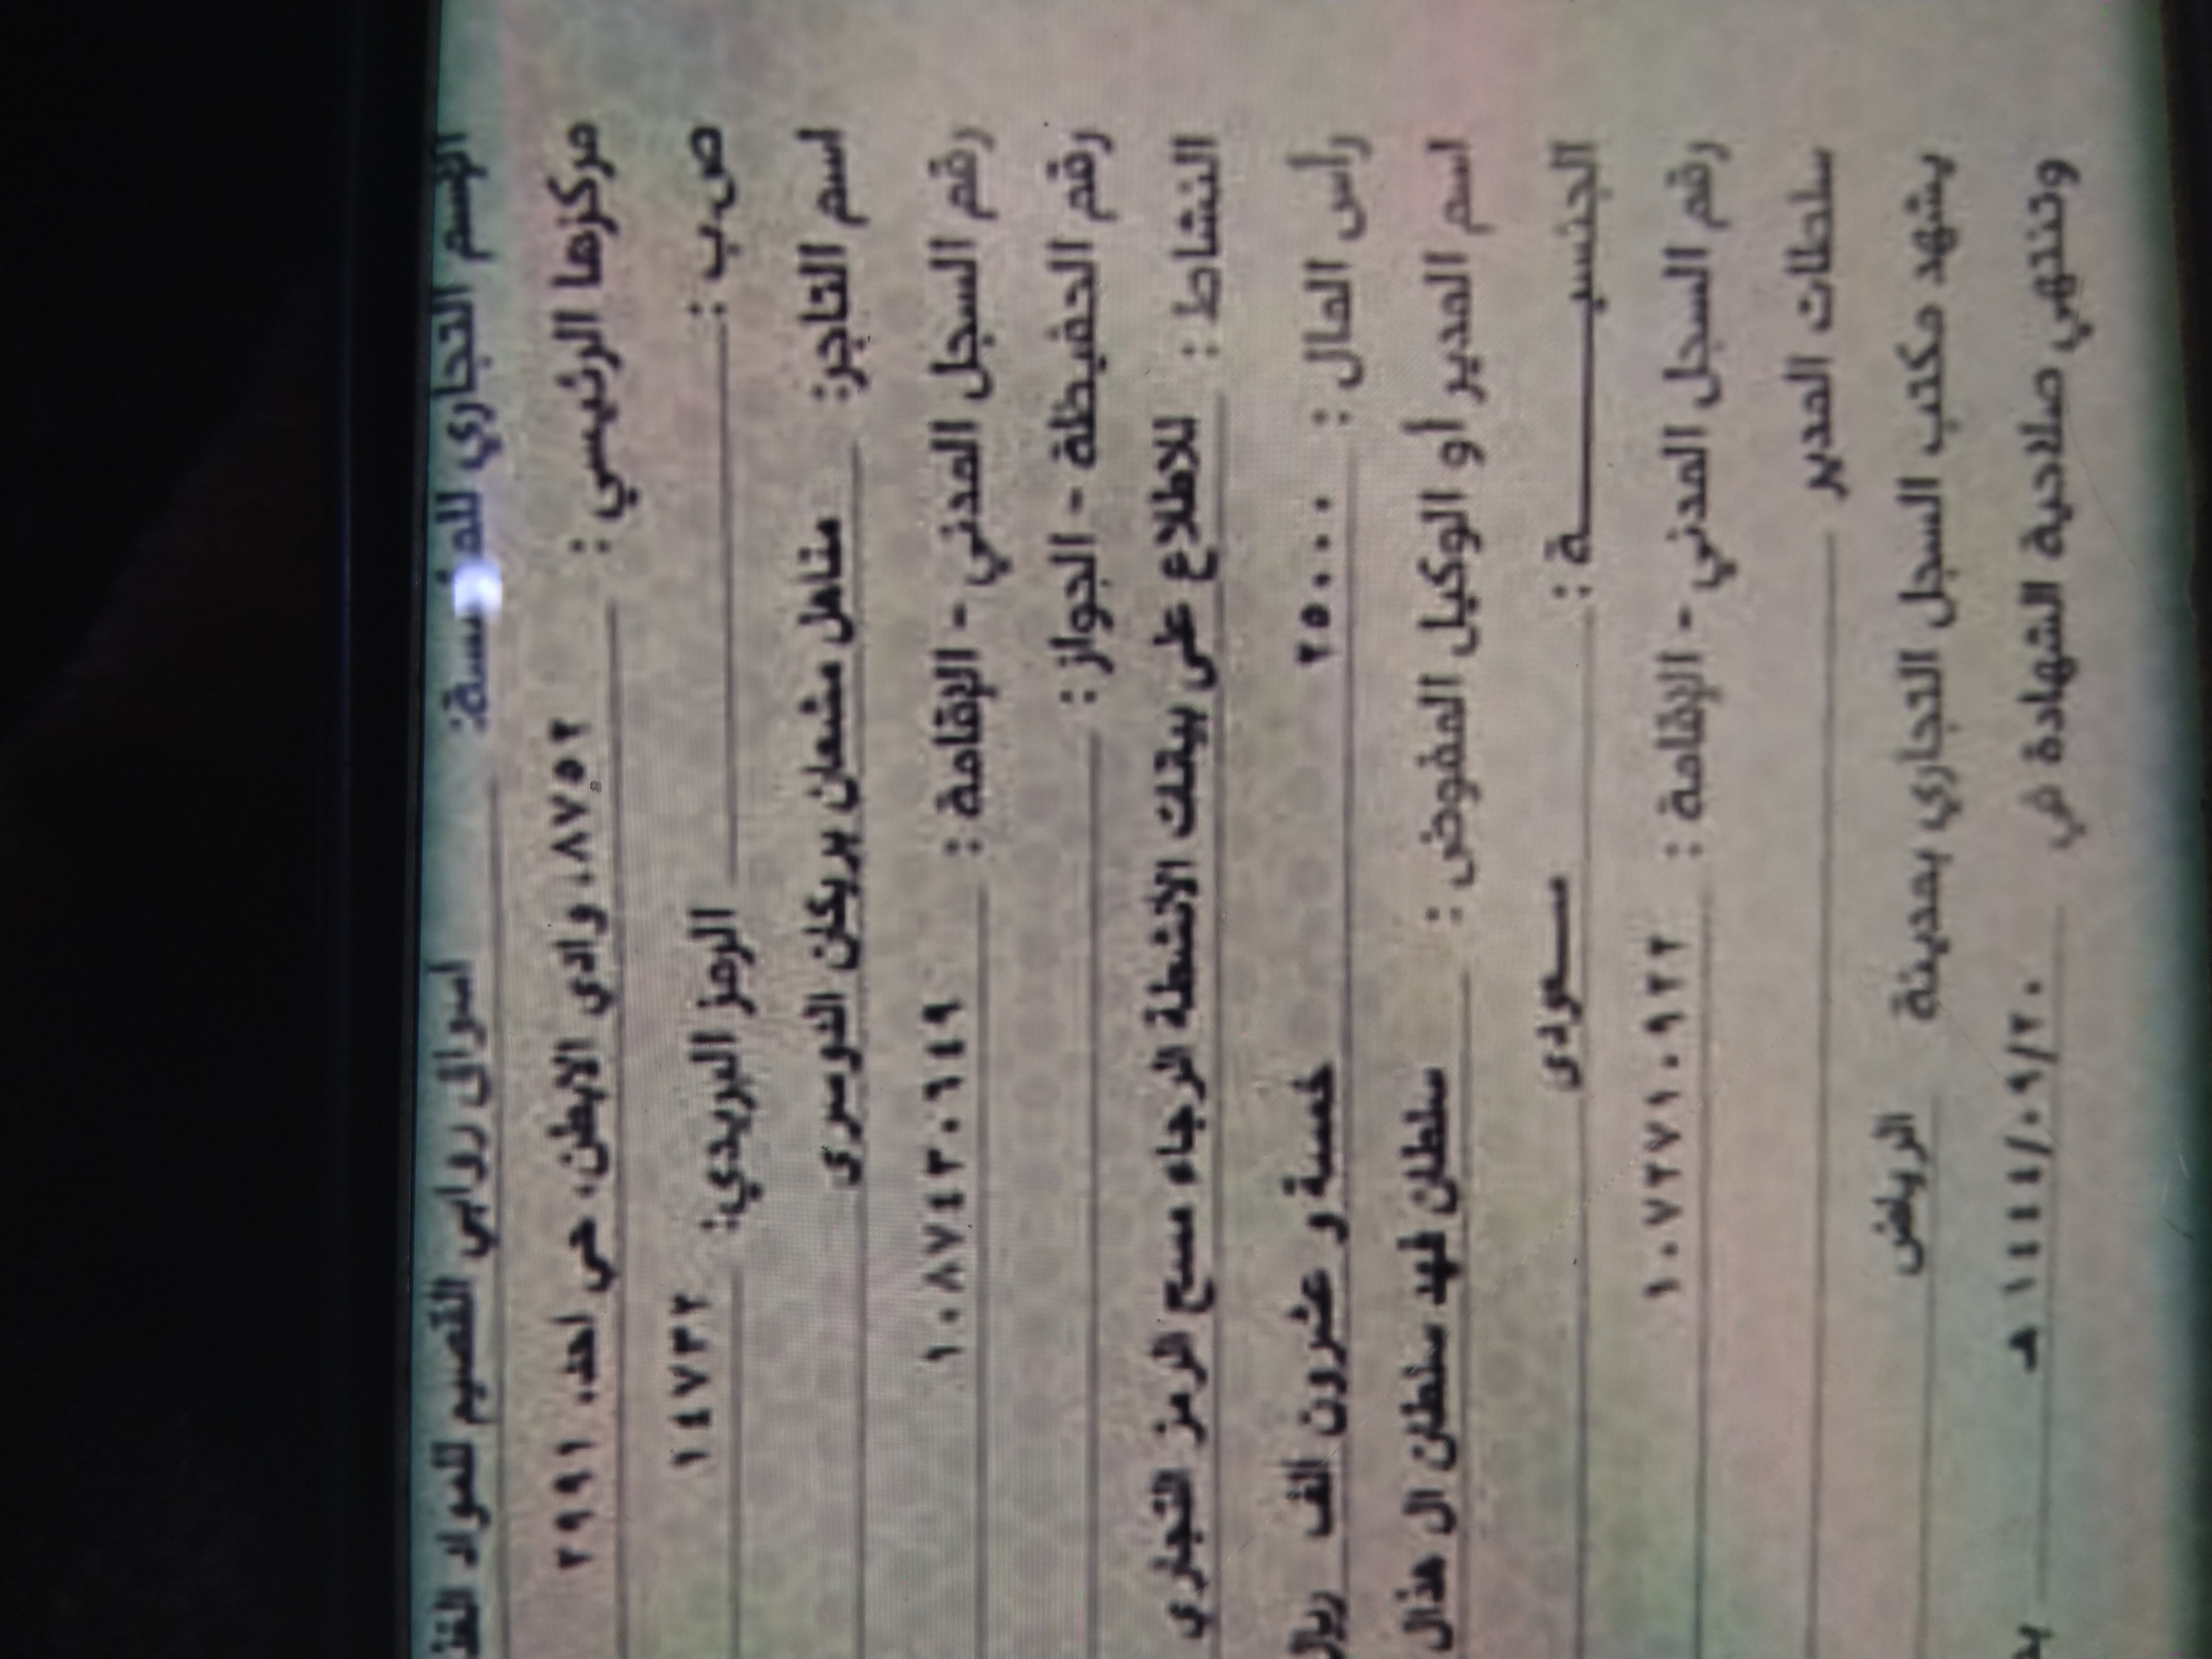 الإسم التجاري للمؤسسة: اسوالى روابي القصيم للمواد
مركزها الرئيسي : ٨٧٥٢، وادي الابطن، حي احد، ٢٩٩١
ص.ب : الرمز البريدي: ١٤٧٣٢
اسم التاجر: مناهل مشعان بريكان الدوسرى
رقم السجل المدني - الإقامة : ١٠٨٧٤٣٠٦٤٩
رقم الحفيظة - الجواز :
النشاط : للاطلاع على بيانات الأنشطة الرجاء مسح الرمز التجاري
رأس المال : ٢٥٠٠٠ خمسة و عشرون الف ريال
اسم المدير أو الوكيل المفوض : سلطان فهد سلطان ال هذال
الجنسيـــــــــة : سعودى
رقم السجل المدني - الإقامة : ١٠٧٢٧١٠٩٢٢
سلطات المدير
يشهد مكتب السجل التجاري بمدينة الرياض
وتنتهي صلاحية الشهادة في ١٤٤٤/٠٩/٢٠ هـ